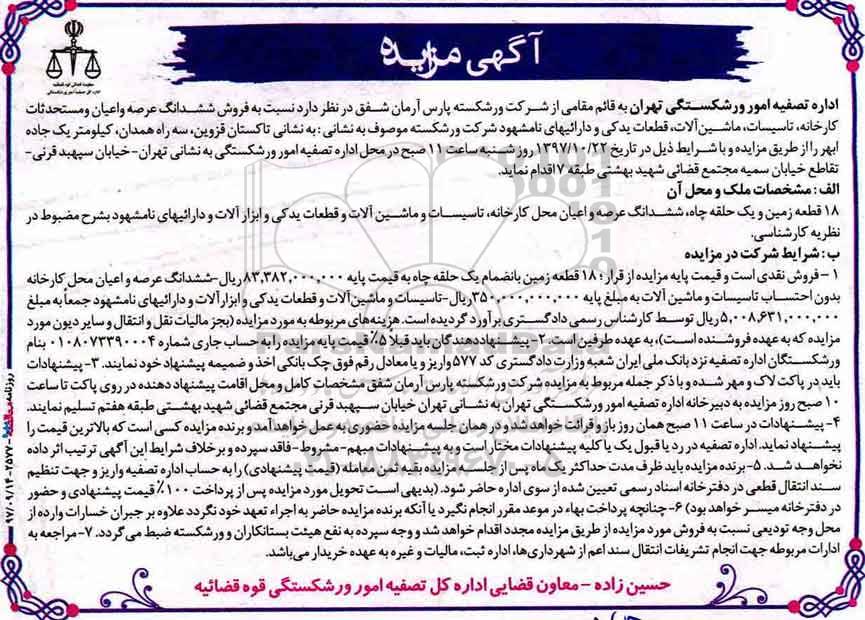 آگهی مزایده
اداره تصفیه امور ورشکستگی تهران به قائم مقامی از شرکت ورشکسته پارس آرمان شفق در نظر دارد نسبت به فروش ششدانگ عرصه واعیان ومستحدثات
کارخانه، تاسیسات، ماشین‌آلات، قطعات یدکی و دارائیهای نامشهود شرکت ورشکسته موصوف به نشانی : به نشانی تاکستان قزوین، سه راه همدان، کیلومتر یک جاده
ابهر را از طریق مزایده و با شرایط ذیل در تاریخ ۱۳۹۷/۱۰/۲۲ روز شنبه ساعت ۱۱ صبح در محل اداره تصفیه امور ورشکستگی به نشانی تهران - خیابان سپهبد قرنی-
تقاطع خیابان سمیه مجتمع قضائی شهید بهشتی طبقه ۷ اقدام نماید.
الف : مشخصات ملک و محل آن
۱۸ قطعه زمین و یک حلقه چاه، ششدانگ عرصه و اعیان محل کارخانه، تاسیسات و ماشین آلات و قطعات یدکی و ابزار آلات و دارائیهای نامشهود بشرح مضبوط در
نظریه کارشناسی.
ب : شرایط شرکت در مزایده
۱ - فروش نقدی است و قیمت پایه مزایده از قرار : ۱۸ قطعه زمین بانضمام یک حلقه چاه به قیمت پایه ۸۳,۳۸۲,۰۰۰,۰۰۰ ریال-ششدانگ عرصه و اعیان محل کارخانه
بدون احتساب تاسیسات و ماشین آلات به مبلغ پایه ۳۵۰,۰۰۰,۰۰۰,۰۰۰ ریال-تاسیسات و ماشین‌آلات و قطعات یدکی و ابزارآلات و دارائیهای نامشهود جمعاً به مبلغ
۵,۰۰۸,۶۳۱,۰۰۰,۰۰۰ ریال توسط کارشناس رسمی دادگستری برآورد گردیده است. هزینه‌های مربوطه به مورد مزایده (بجز مالیات نقل و انتقال و سایر دیون مورد
مزایده که به عهده فروشنده است)، به عهده طرفین است. ۲- پیشنهاد دهندگان باید قبلاً ۵٪ قیمت پایه مزایده را به حساب جاری شماره ۰۱۰۸۰۷۳۳۹۰۰۰۴ بنام
ورشکستگان اداره تصفیه نزد بانک ملی ایران شعبه وزارت دادگستری کد ۵۷۷ واریز و یا معادل رقم فوق چک بانکی اخذ و ضمیمه پیشنهاد خود نمایند. ۳- پیشنهادات
باید در پاکت لاک و مهر شده و با ذکر جمله مربوط به مزایده شرکت ورشکسته پارس آرمان شفق مشخصات کامل و محل اقامت پیشنهاد دهنده در روی پاکت تا ساعت
۱۰ صبح روز مزایده به دبیرخانه اداره تصفیه امور ورشکستگی تهران به نشانی تهران خیابان سپهبد قرنی مجتمع قضائی شهید بهشتی طبقه هفتم تسلیم نمایند.
۴- پیشنهادات در ساعت ۱۱ صبح همان روز باز و قرائت خواهد شد و در همان جلسه مزایده حضوری به عمل خواهد آمد و برنده مزایده کسی است که بالاترین قیمت را
پیشنهاد نماید. اداره تصفیه در رد یا قبول یک یا کلیه پیشنهادات مختار است و به پیشنهادات مبهم- مشروط- فاقد سپرده و برخلاف شرایط این آگهی ترتیب اثر داده
نخواهد شد. ۵- برنده مزایده باید ظرف مدت حداکثر یک ماه پس از جلسه مزایده بقیه ثمن معامله (قیمت پیشنهادی) را به حساب اداره تصفیه واریز و جهت تنظیم
سند انتقال قطعی در دفترخانه اسناد رسمی تعیین شده از سوی اداره حاضر شود. (بدیهی است تحویل مورد مزایده پس از پرداخت ۱۰۰٪ قیمت پیشنهادی و حضور
در دفترخانه میسر خواهد بود) ۶- چنانچه پرداخت بهاء در موعد مقرر انجام نگیرد یا آنکه برنده مزایده حاضر به اجراء تعهد خود نگردد علاوه بر جبران خسارات وارده از
محل وجه تودیعی نسبت به فروش مورد مزایده از طریق مزایده مجدد اقدام خواهد شد و وجه سپرده به نفع هیئت بستانکاران و ورشکسته ضبط می گردد. ۷- مراجعه به
ادارات مربوطه جهت انجام تشریفات انتقال سند اعم از شهرداری‌ها، اداره ثبت، مالیات و غیره به عهده خریدار می‌باشد.
حسین زاده - معاون قضایی اداره کل تصفیه امور ورشکستگی قوه قضائیه